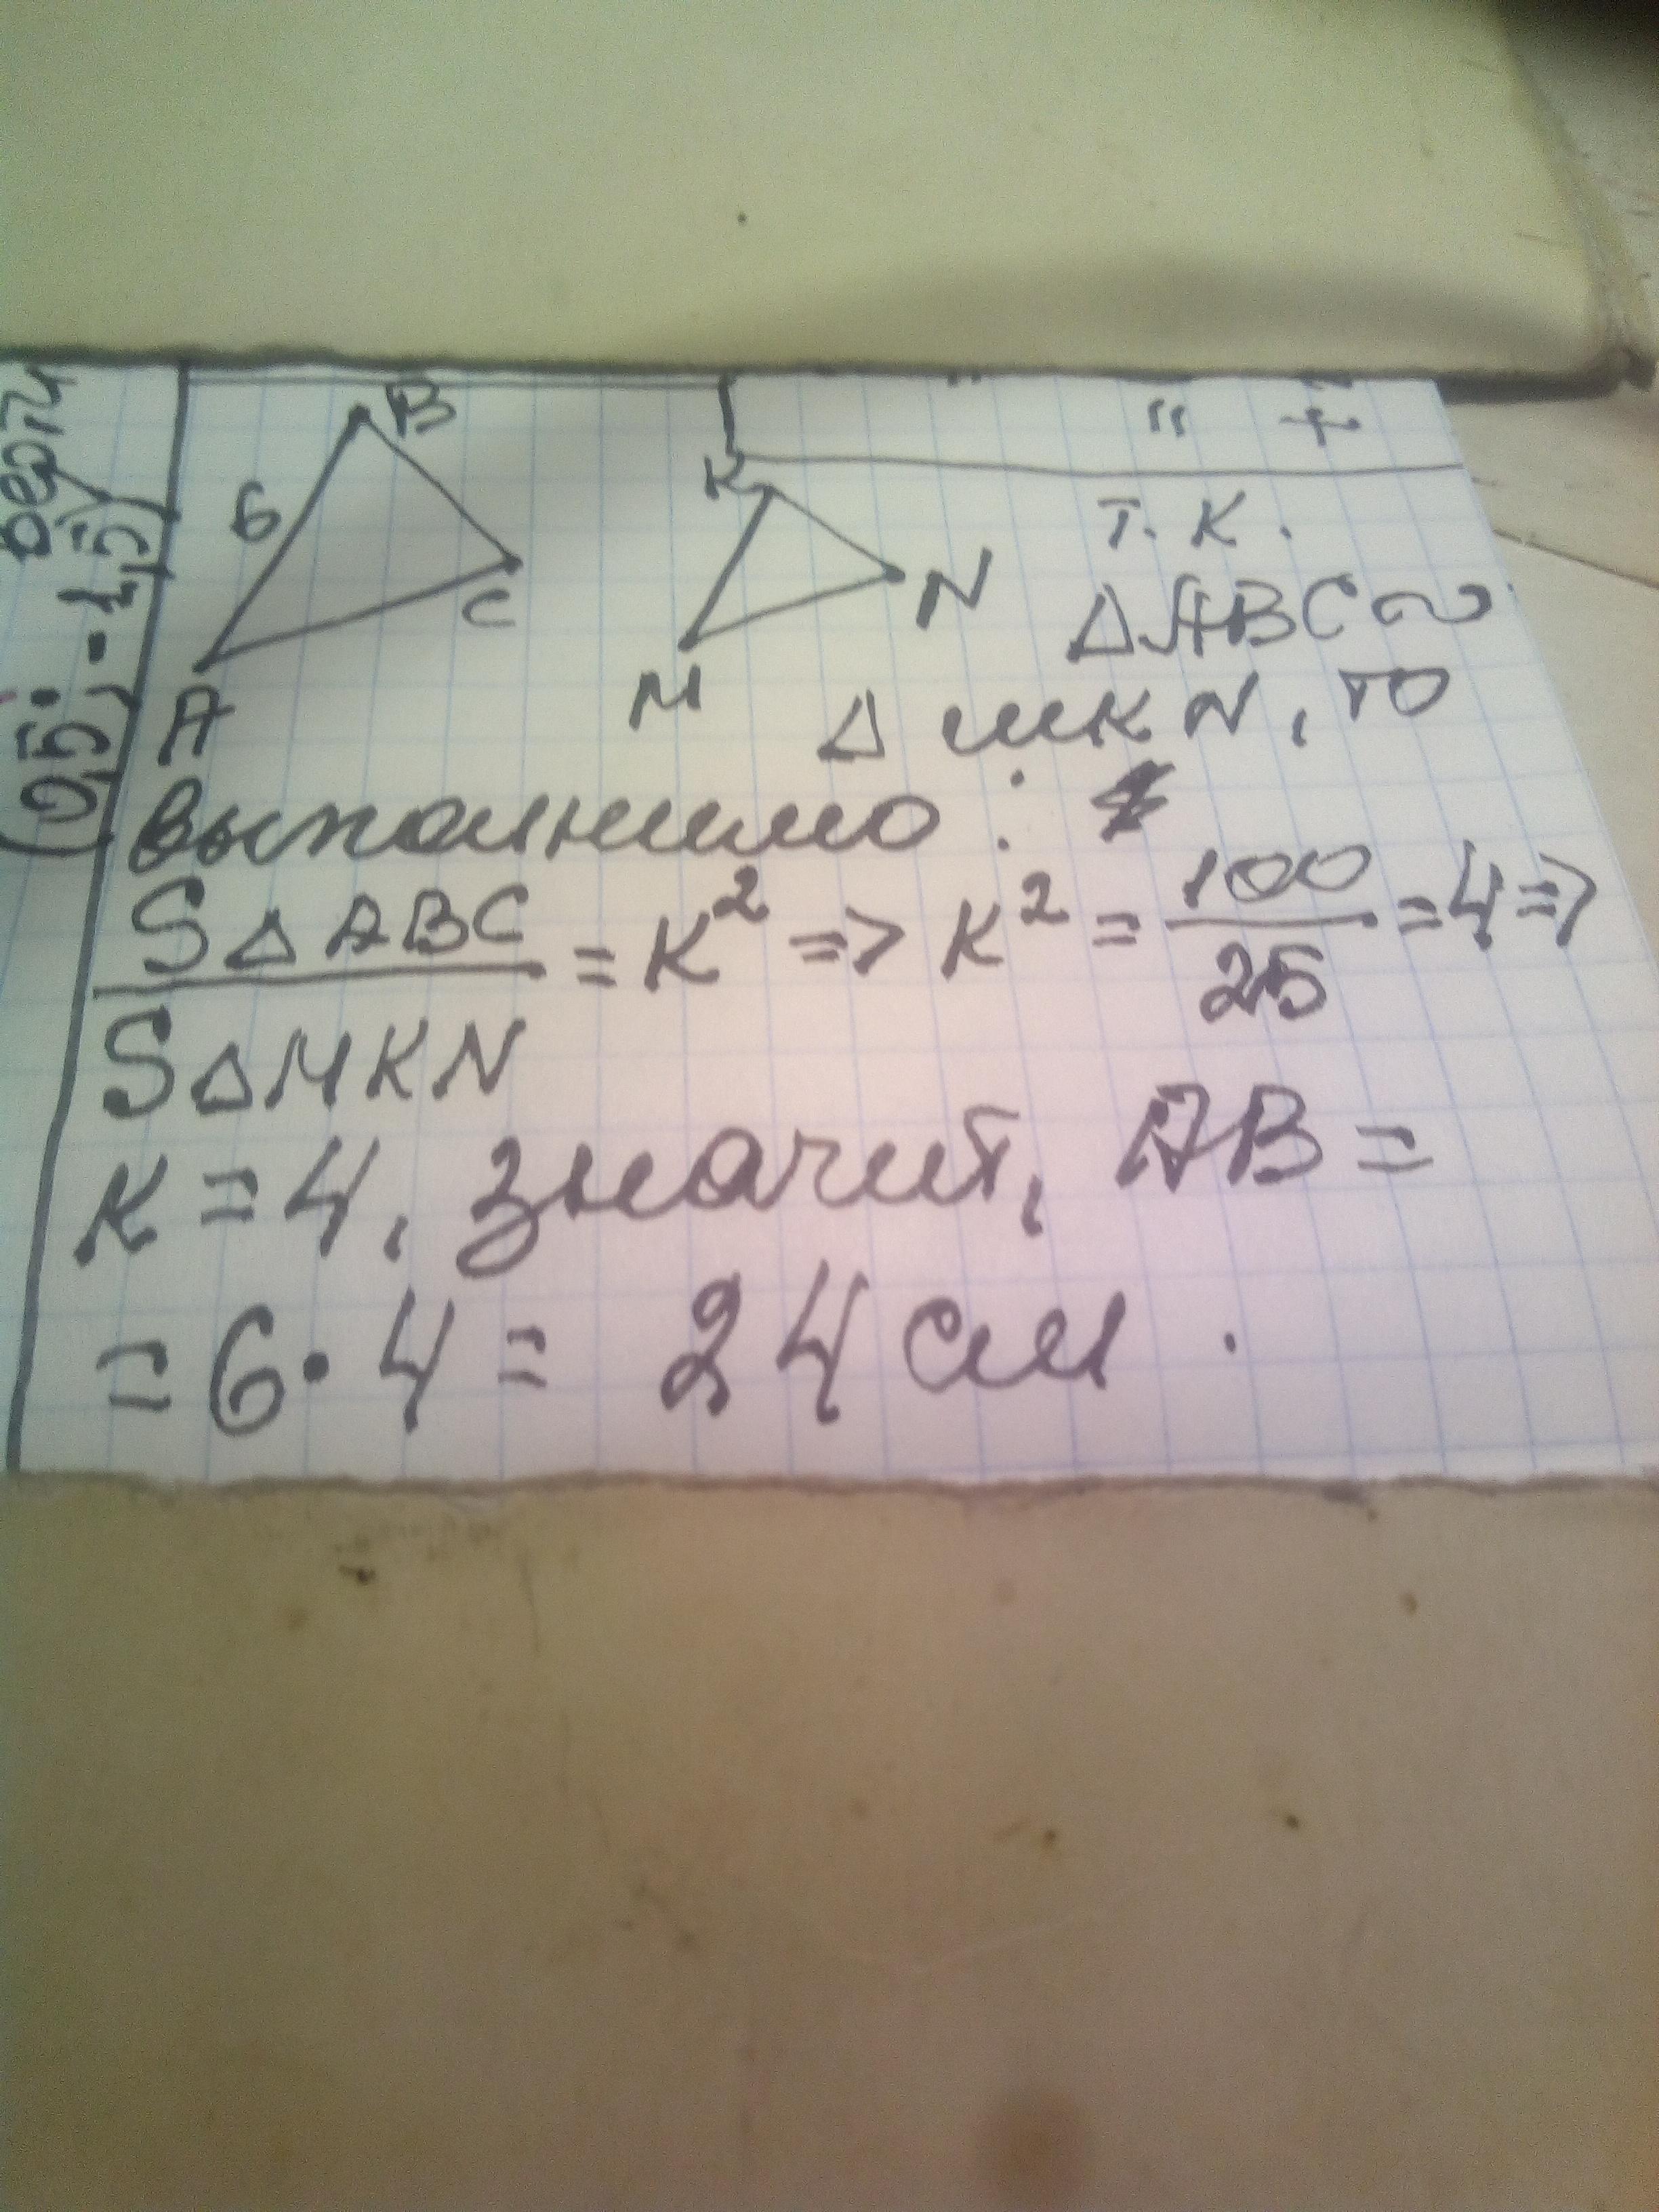 B
6
C
A
K
N
M
" +
т. к.
△ABC ∼
△ мKN, то
выполнимо :
S△ABC/S△MKN = K² => K² = 100/25 = 4 =>
K = 4, значит, AB =
= 6 · 4 = 24 см .